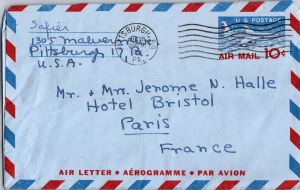 Safier
1305 Malvern
Pittsburgh 17 Pa.
U.S.A.
PITTSBURGH
PA.
U.S. POSTAGE
AIR MAIL 10¢
Mr. + Mrs. Jerome N. Halle
Hotel Bristol
Paris
France
AIR LETTER • AÉROGRAMME • PAR AVION